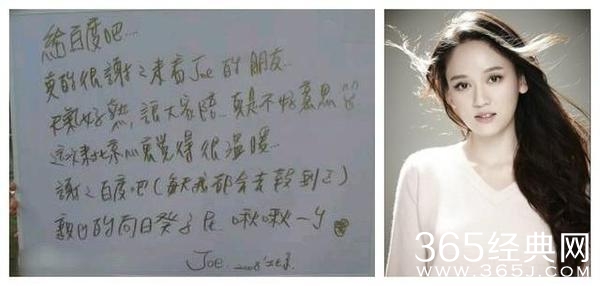 給百度吧....
真的很謝々来看Joe的朋友..
天氣好熱,讓大家陪..真是不好意思
這次來北京...覺得很溫暖...
謝々百度吧(每天我都会去報到々)
親的向日葵子民 啾啾一
Joe. 2008'北京
365经典网
www.365J.com